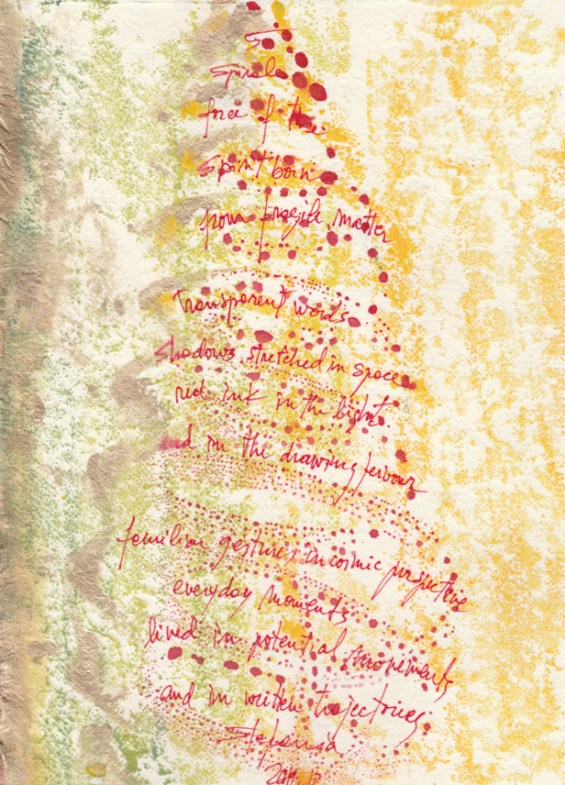 5
Spirale
force of the
spirit born
from fragile matter
transparent words
shadows stretched in space
red ink in the light
and in the drawing fervour
gestures in cosmic perspective
everyday moments
lived in potential movements
and in written trajectories
Stefania